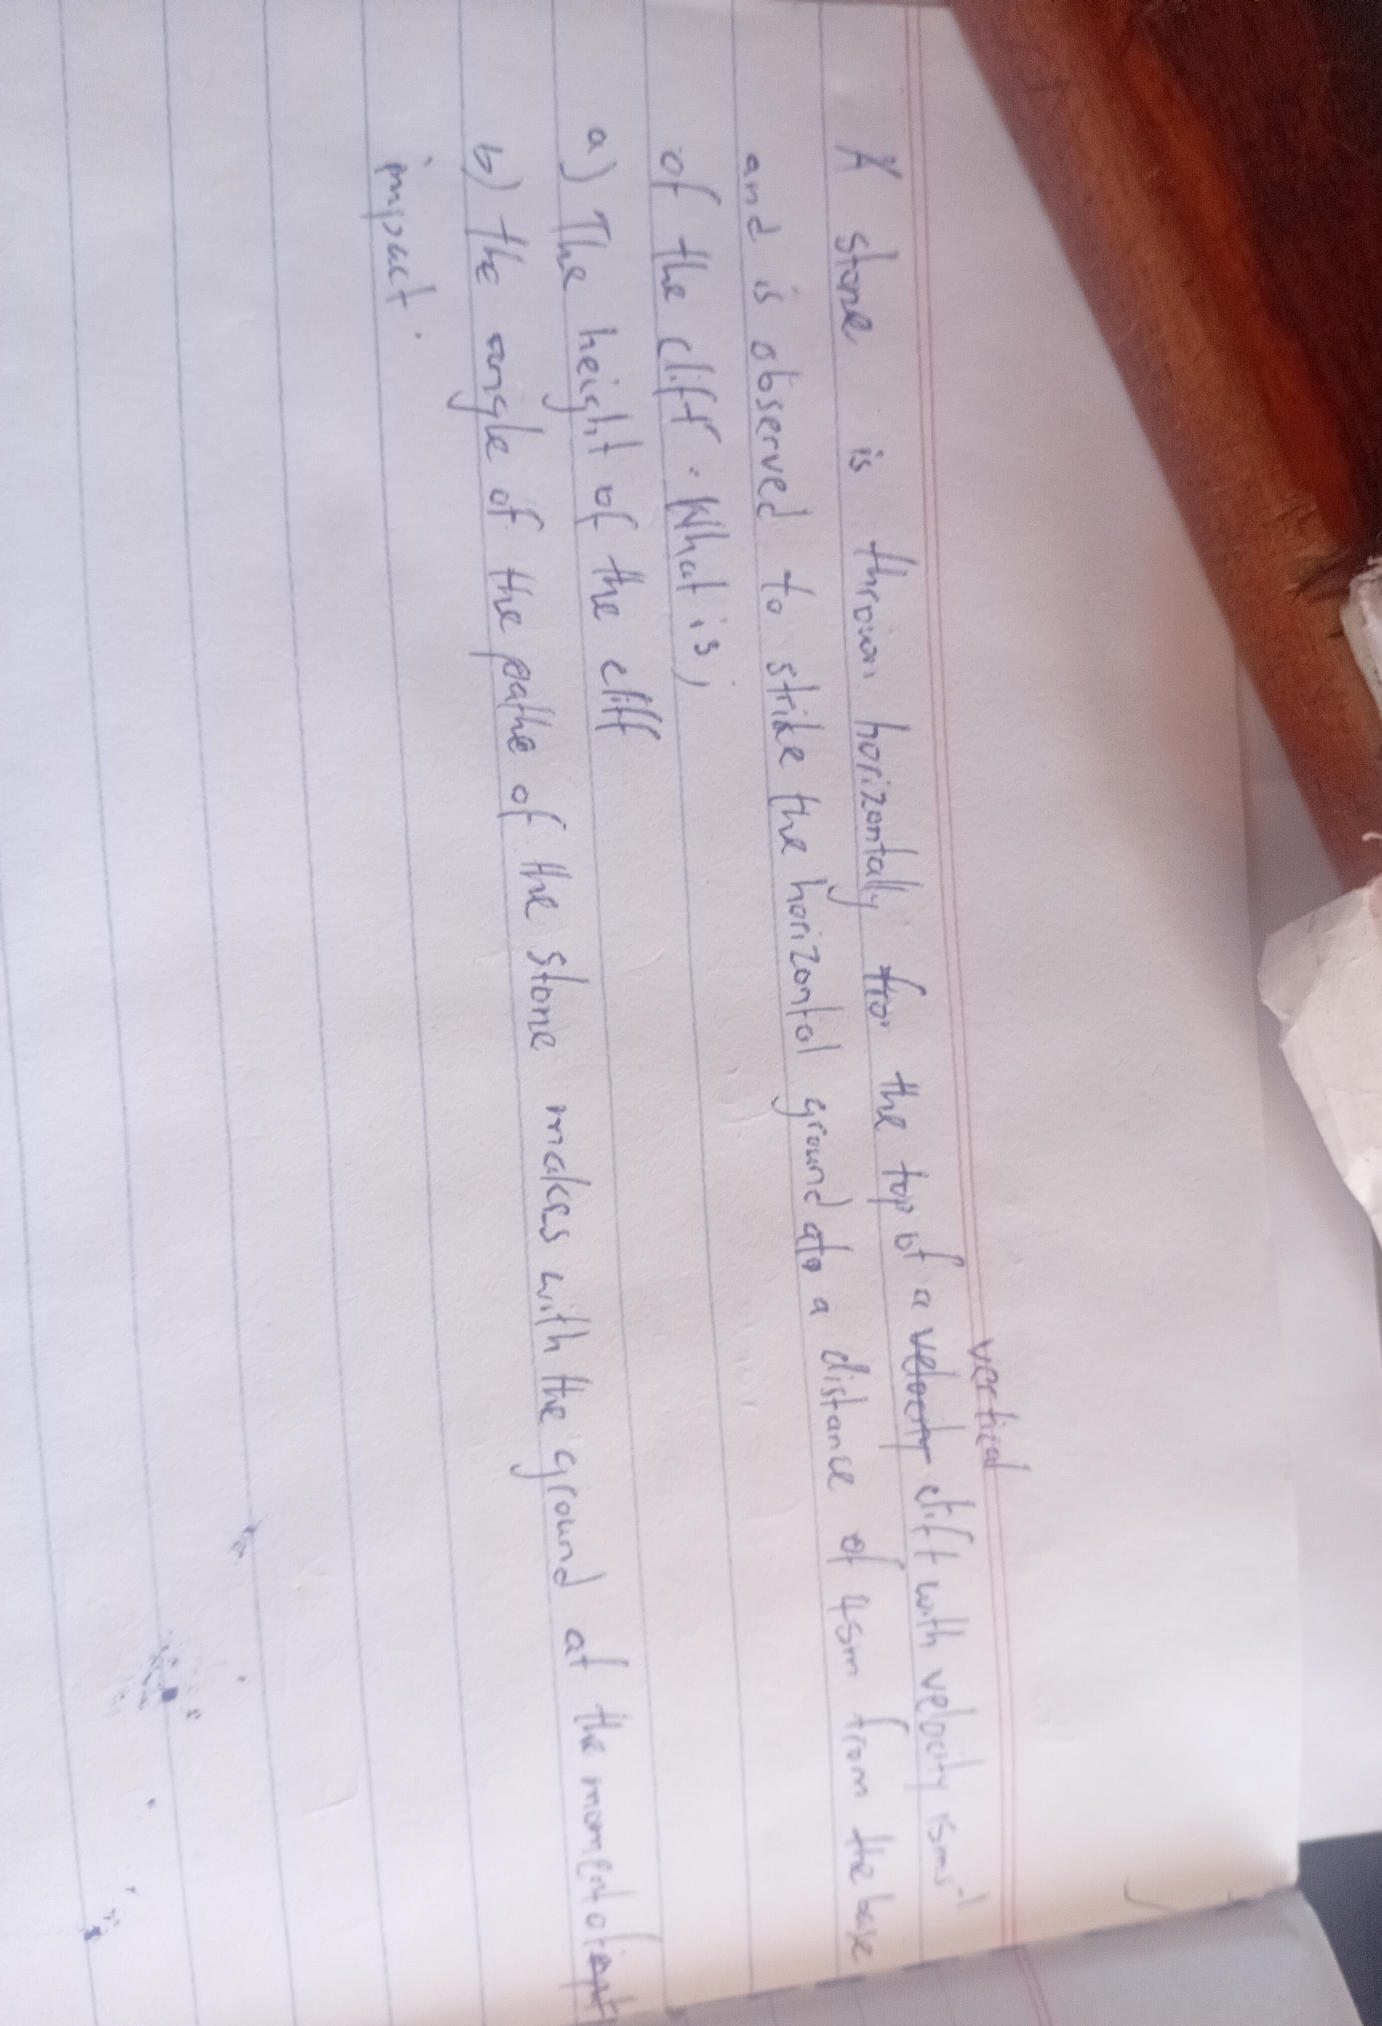 vertical
A stone is thrown horizontally fro the top of a velocity cliff with velocity 15ms⁻¹
and is observed to strike the horizontal ground at a distance of 45m from the base
of the cliff. What is,
a) The height of the cliff
b) the angle of the pathe of the stone makes with the ground at the moment of imp
impact.